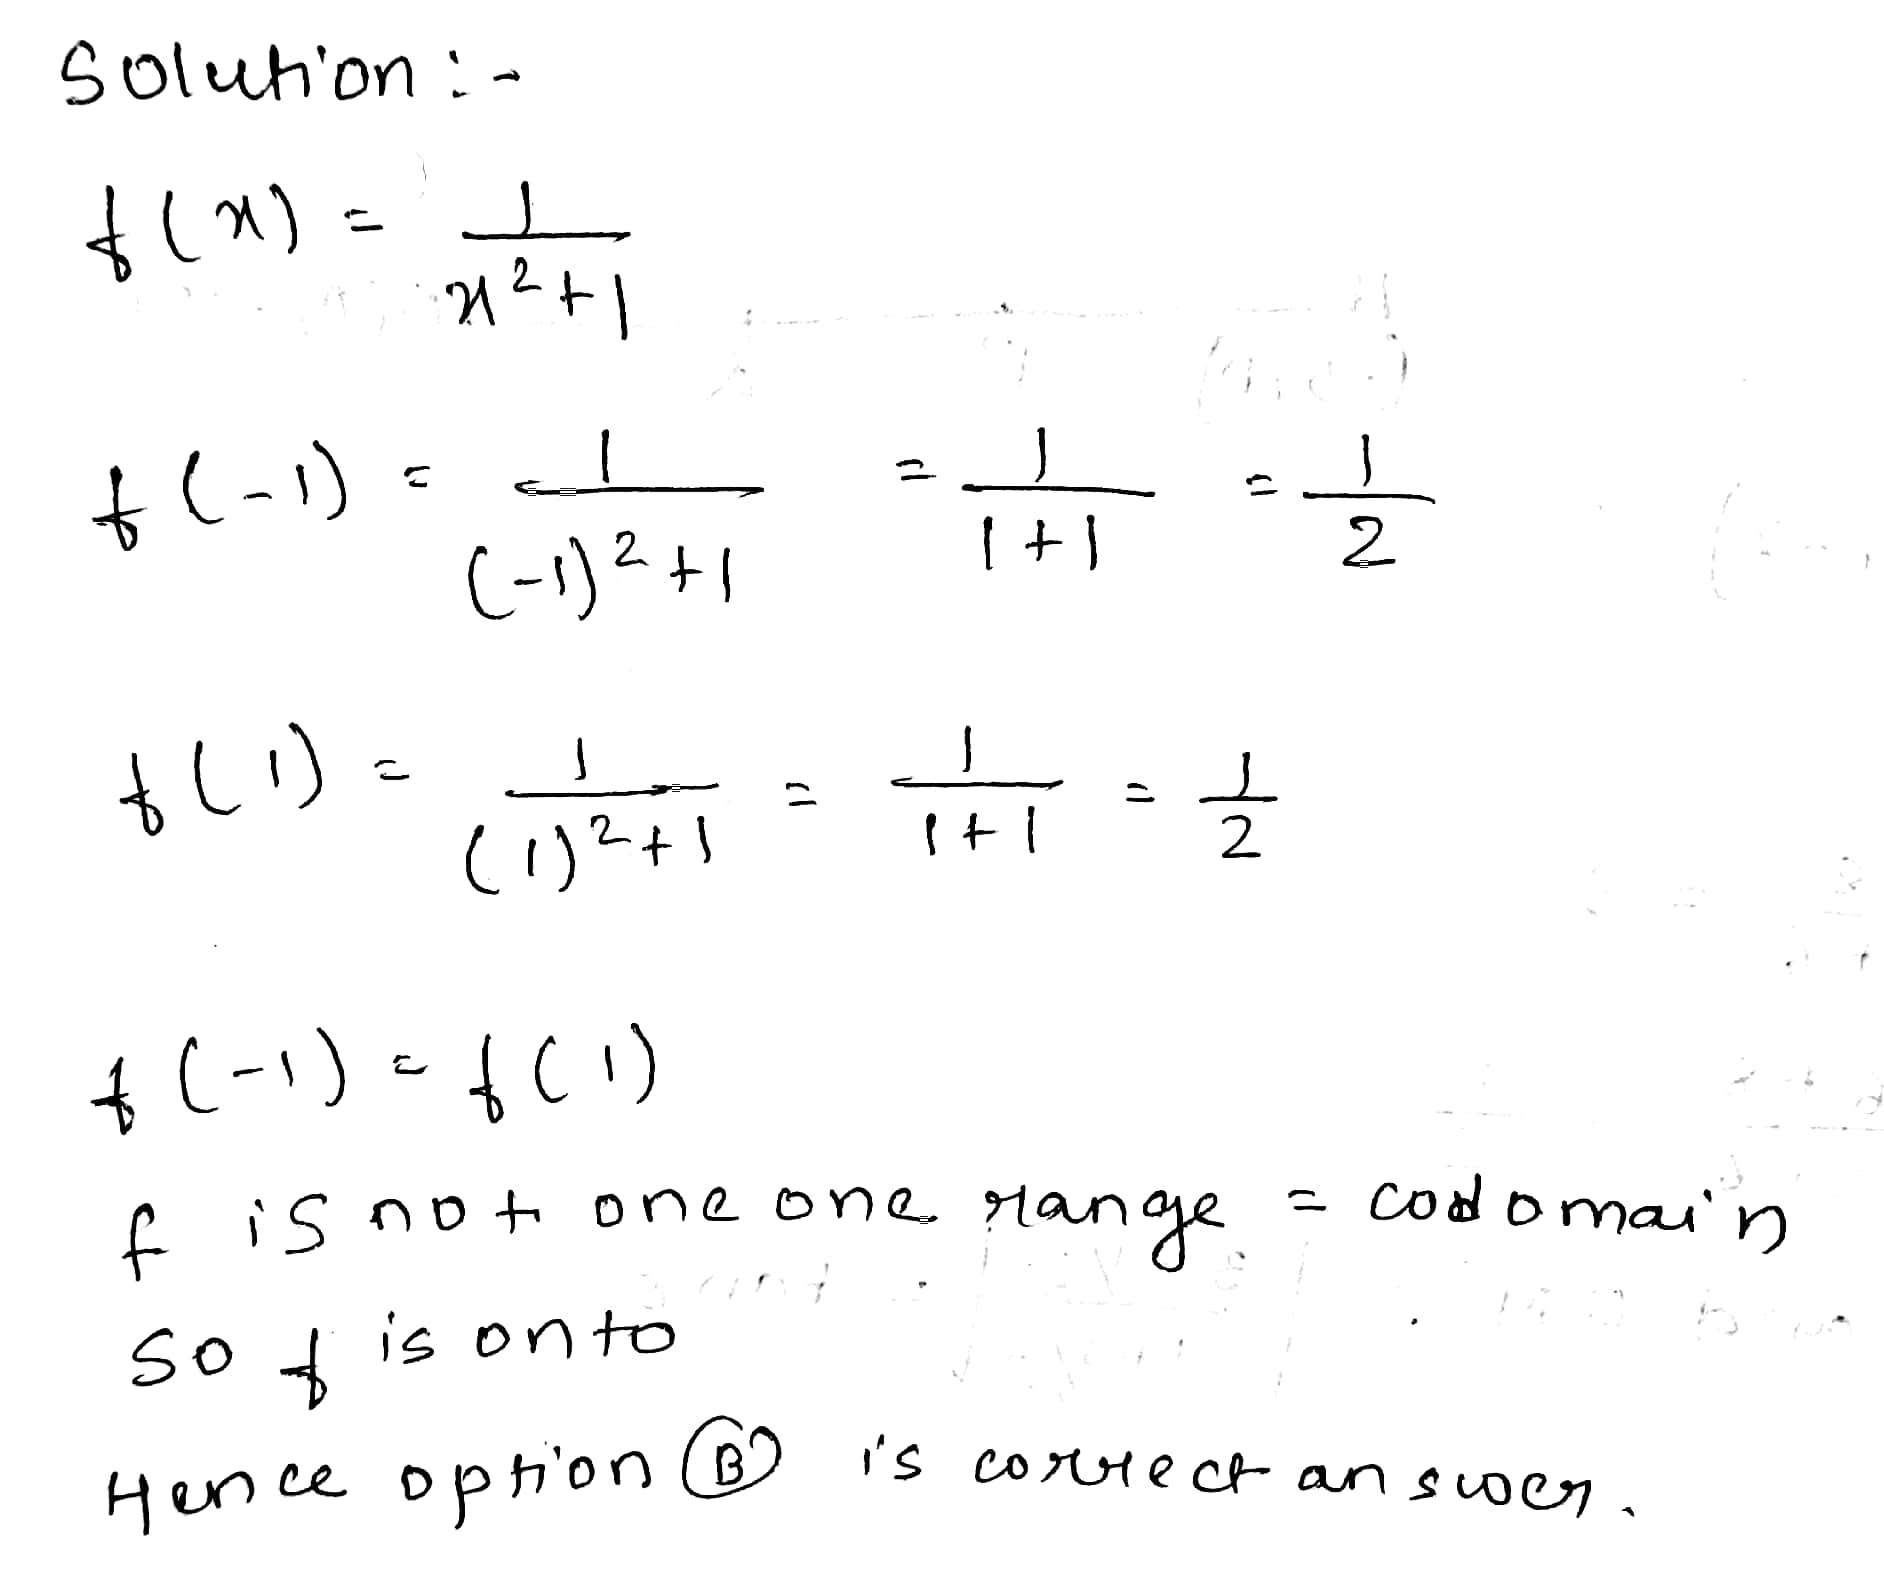 Solution :-
f(x) = 1/(x²+1)
f(-1) = 1/((-1)²+1) = 1/(1+1) = 1/2
f(1) = 1/((1)²+1) = 1/(1+1) = 1/2
f(-1) = f(1)
f is not one one range = codomain
so f is onto
Hence option (B) is correct answer.